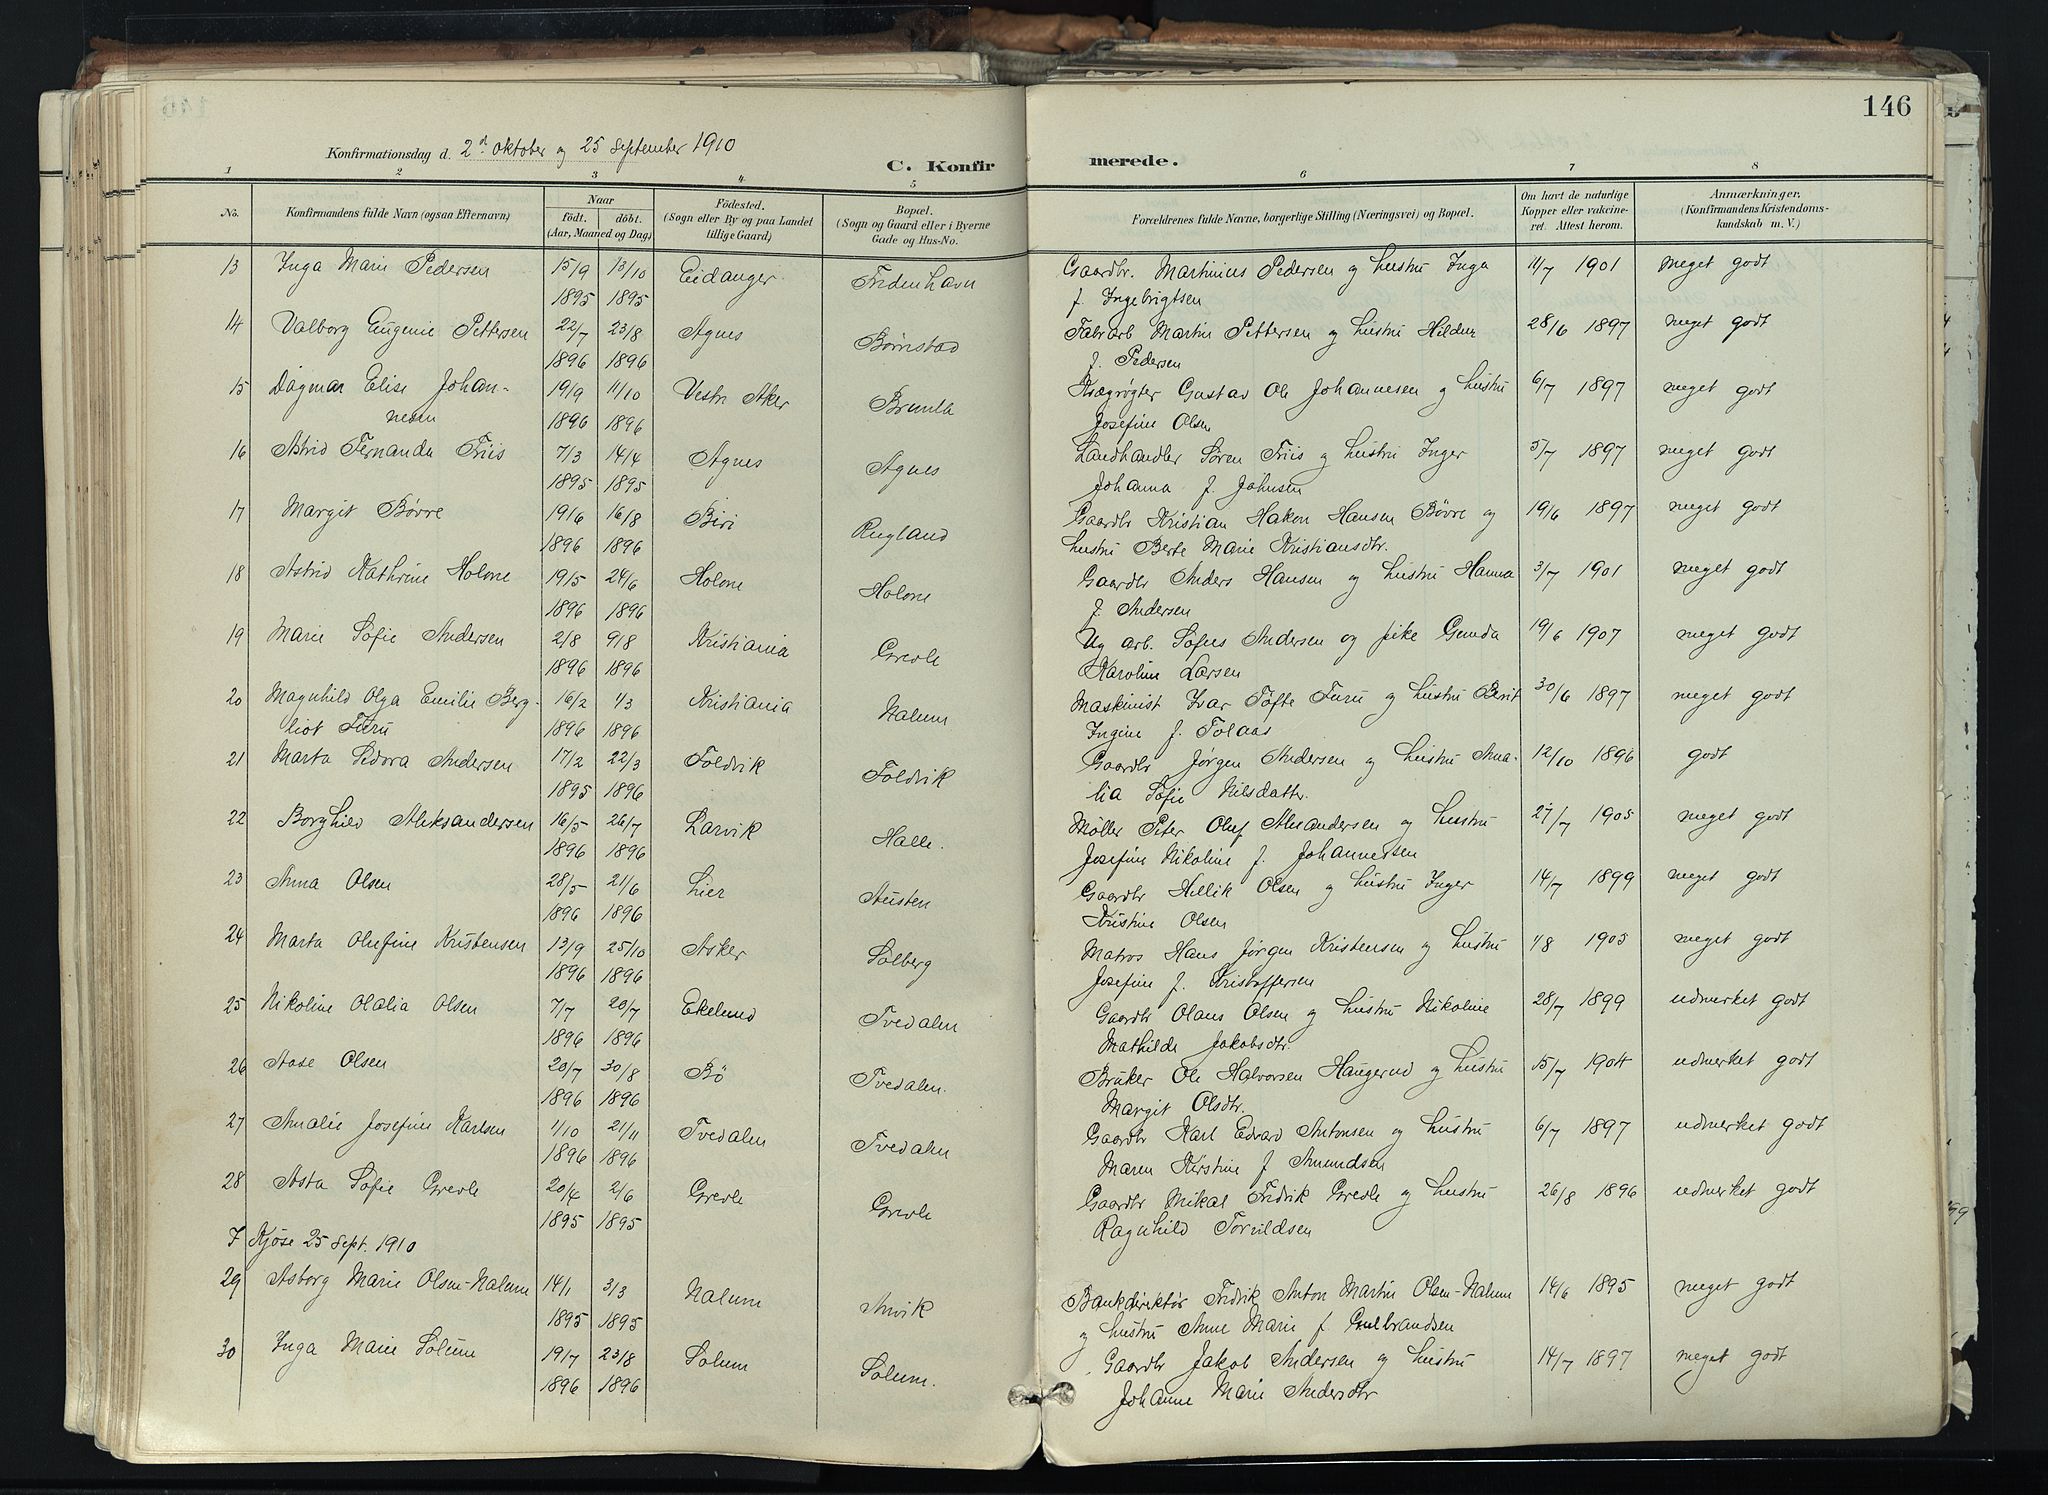 146
Konfirmationsdag d. 2d oktober og 25 september 1910
C. Konfirmerede.
1 2 3 4 5 6 7 8
No. Konfirmandens fulde Navn (ogsaa Efternavn) Naar født. døbt. (Aar, Maaned og Dag) Fødested. (Sogn eller By og paa Landet tillige Gaard) Bopæl. (Sogn og Gaard eller i Byerne Gade og Hus-No. Forældrenes fulde Navne, borgerlige Stilling (Næringsvei) og Bopæl. Om havt de naturlige Kopper eller vakcineret. Attest herom. Anmærkninger, (Konfirmandens Kristendomskundskab m. V.)
13 Inga Marie Pedersen 15/9 13/10 Eidanger Fredenhavn Gaardbr. Martinius Pedersen og hustru Inga 11/7 1901 meget godt
1895 1895 f. Ingebrigtsen
14 Valborg Eugenie Pettersen 22/7 23/8 Agnes Bømstad Fabrarb Martin Pettersen og hustru Hilda 28/6 1897 meget godt
1896 1896 f. Pedersen
15 Dagmar Elise Johan- 19/9 11/10 Vestre Aker Brunla Kvægrøgter Gustav Ole Johannesen og hustru 6/7 1897 meget godt
nesen 1896 1896 Josefine Olsen
16 Astrid Fernanda Friis 7/3 14/4 Agnes Agnes Landhandler Søren Friis og hustru Inger 5/7 1897 meget godt
1895 1895 Johanna f. Johnsen
17 Margit Bøvre 19/6 16/8 Biri Rugland Gaardbr Kristian Hakon Hansen Bøvre og 19/6 1897 meget godt
1896 1896 hustru Berte Marie Kristiansdtr.
18 Astrid Kathrine Holone 19/5 24/6 Holone Holone Gaardbr Anders Hansen og hustru Hanna 3/7 1901 meget godt
1896 1896 f. Andersen
19 Marie Sofie Andersen 2/8 9/8 Kristiania Grevle Ug arb. Sofus Andersen og pike Gunda 19/6 1907 meget godt
1896 1896 Karoline Larsen
20 Magnhild Olga Emilie Berg- 16/2 1/3 Kristiania Nalum Maskinist Ivar Tøfte Furu og hustru Berit 30/6 1897 meget godt
liot Furu 1896 1896 Ingine f. Tolaas
21 Marta Sedora Andersen 17/2 22/3 Foldvik Foldvik Gaardbr Jørgen Andersen og hustru Ama- 12/10 1896 godt
1895 1896 lia Sofie Nilsdatter.
22 Borghild Aleksandersen 16/5 26/7 Larvik Halle. Møller Peter Oluf Alexandersen og hustru 27/7 1905 meget godt
1896 1896 Josefine Nikoline f. Johannessen
23 Anna Olsen 28/5 21/6 Lier Austen Gaardbr Hellik Olsen og hustru Inger 14/7 1899 meget godt
1896 1896 Kristine Olsen
24 Marta Olufine Kristensen 13/9 25/10 Asker Solberg Matros Hans Jørgen Kristensen og hustru 4/8 1903 meget godt
1896 1896 Josefine f. Kristoffersen
25 Nikoline Olalia Olsen 7/7 20/7 Ekelund Tvedalen Gaardbr Olaus Olsen og hustru Nikoline 28/7 1899 udmerket godt
1896 1896 Mathilde Jakobsdtr.
26 Aase Olsen 20/7 30/8 Bø Tvedalen. Bruker Ole Halvorsen Haugerud og hustru 15/7 1904 udmerket godt
1896 1896 Margit Olsdtr.
27 Amalie Josefine Karlsen 1/10 21/11 Tvedalen Tvedalen Gaardbr Karl Edvard Antonsen og hustru 6/7 1897 udmerket godt
1896 1896 Maren Kirstine f Amundsen
28 Asta Sofie Grevle 20/4 2/6 Grevle Grevle Gaardbr Mikal Fredrik Grevle og hustru 26/8 1896 udmerket godt
1895 1895 Ragnhild Torvildsen
I Kjose 25 Sept. 1910
29 Asborg Marie Olsen-Nalum 14/1 3/3 Nalum Anvik Bankdirektør Fredrik Anton Martin Olsen-Nalum 14/6 1895 meget godt
1895 1895 og hustru Anne Marie f. Gulbrandsen
30 Inga Marie Solum 19/7 23/8 Solum Solum. Gaardbr Jakob Andersen og hustru 14/7 1897 meget godt
1896 1896 Johanne Marie Andersdtr